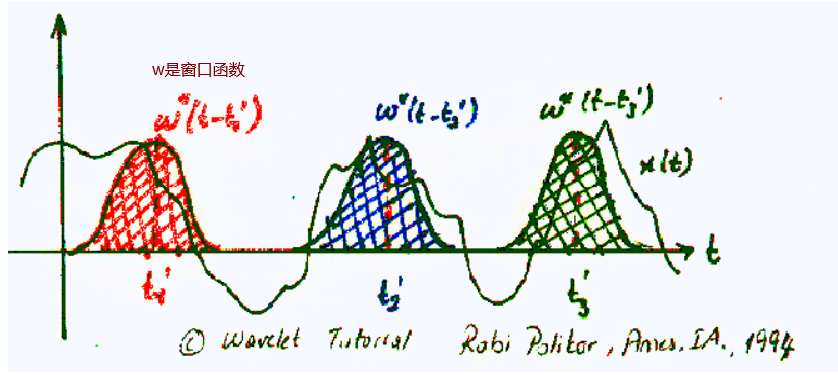 w是窗口函数
ω*(t-t₁') ω*(t-t₂') ω*(t-t₃')
x(t)
t
t₁' t₂' t₃'
© Wavelet Tutorial Robi Polikar, Ames, IA., 1994